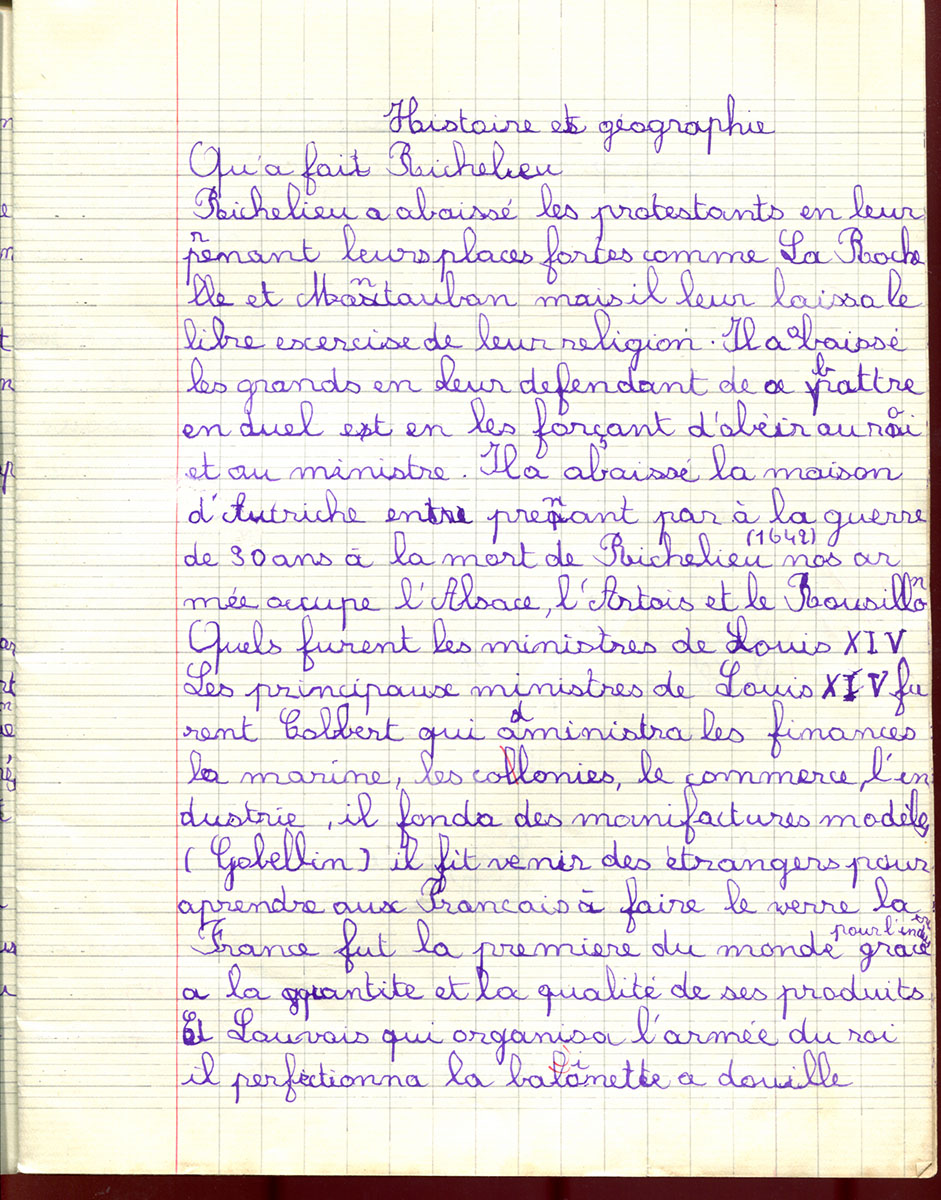 Histoire et géographie
Qu'a fait Richelieu
Richelieu a abaissé les protestants en leur
prenant leurs places fortes comme La Roche
lle et Montauban mais il leur laissa le
libre excercise de leur religion. Il a abaissé
les grands en leur defendant de se battre
en duel et en les forçant d'obéir au roi
et au ministre. Il a abaissé la maison
d'Autriche entre prenant par à la guerre
de 30 ans à la mort de Richelieu (1642) nos ar
mée occupe l'Alsace, l'Artois et le Rousillon
Quels furent les ministres de Louis XIV
Les principaux ministres de Louis XIV fu
rent Colbert qui administra les finances
la marine, les colonies, le commerce, l'in
dustrie, il fonda des manifactures modèles
(Gobellin) il fit venir des étrangers pour
aprendre aux Francais à faire le verre la
France fut la premiere du monde pour l'indus
trie grace
a la quantite et la qualité de ses produits
Et Louvois qui organisa l'armée du roi
il perfectionna la baionette a douille